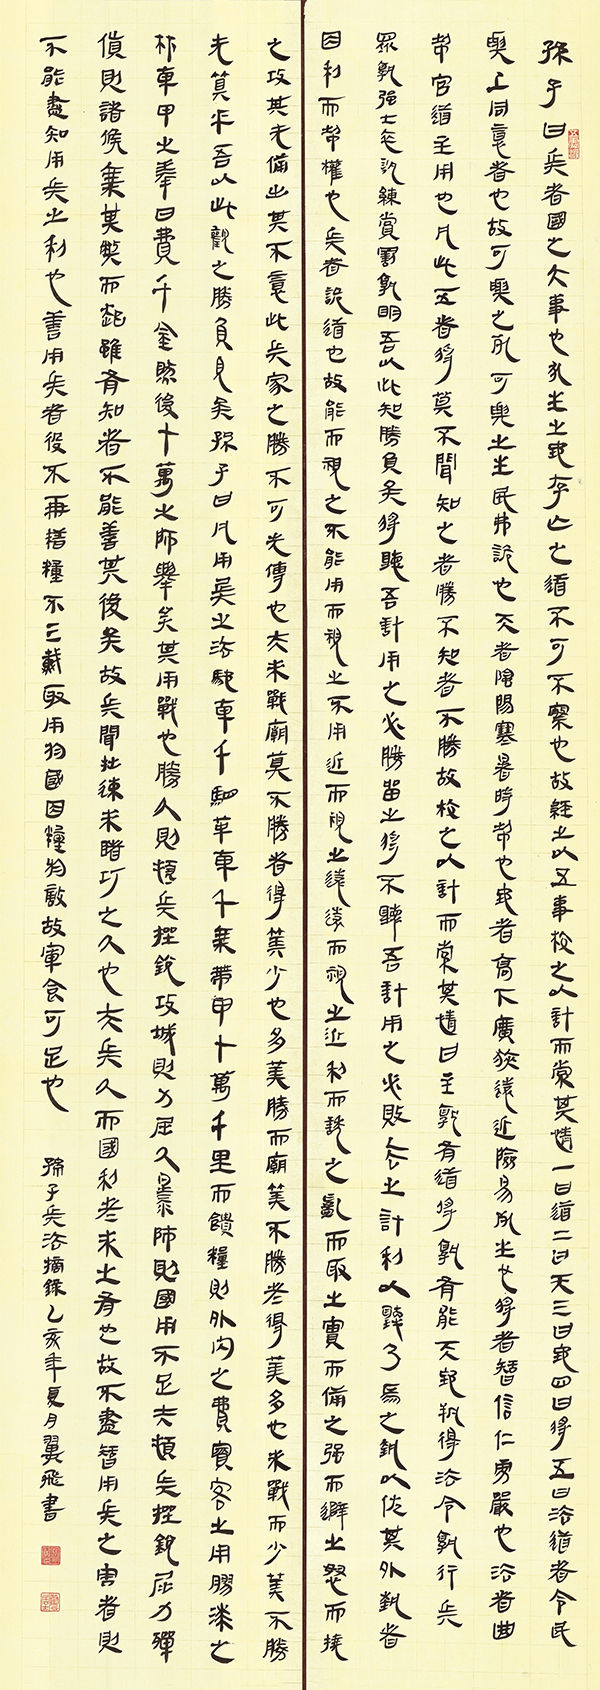 孫子曰兵者國之大事也死生之地存亡之道不可不察也故經之以五事校之以計而索其情一曰道二曰天三曰地四曰將五曰法道者令民
與上同意者也故可與之死可與之生民弗詭也天者陰陽寒暑時制也地者高下廣狹遠近險易死生也將者智信仁勇嚴也法者曲
制官道主用也凡此五者將莫不聞知之者勝不知者不勝故校之以計而索其情曰主孰有道將孰有能天地孰得法令孰行兵
眾孰強士卒孰練賞罰孰明吾以此知勝負矣將聽吾計用之必勝留之將不聽吾計用之必敗去之計利以聽乃爲之埶以佐其外埶者
因利而制權也兵者詭道也故能而視之不能用而視之不用近而視之遠遠而視之近利而誘之亂而取之實而備之強而避之怒而撓
之攻其无備出其不意此兵家之勝不可先傳也夫未戰廟筭不勝者得筭少也多筭勝而廟筭不勝者得筭多也未戰而少筭不勝
无筭乎吾以此觀之勝負見矣孫子曰凡用兵之法馳車千駟革車千乘帶甲十萬千里而饋糧則外內之費賓客之用膠漆之
材車甲之奉日費千金然後十萬之師舉矣其用戰也勝久則頓兵挫銳攻城則力屈久暴師則國用不足夫頓兵挫銳屈力殫
貨則諸侯乘其弊而起雖有知者不能善其後矣故兵聞拙速未睹巧之久也夫兵久而國利者未之有也故不盡智用兵之害者則
不能盡知用兵之利也善用兵者役不再籍糧不三載取用於國因糧於敵故軍食可足也 孫子兵法摘錄乙亥年夏月翼飛書